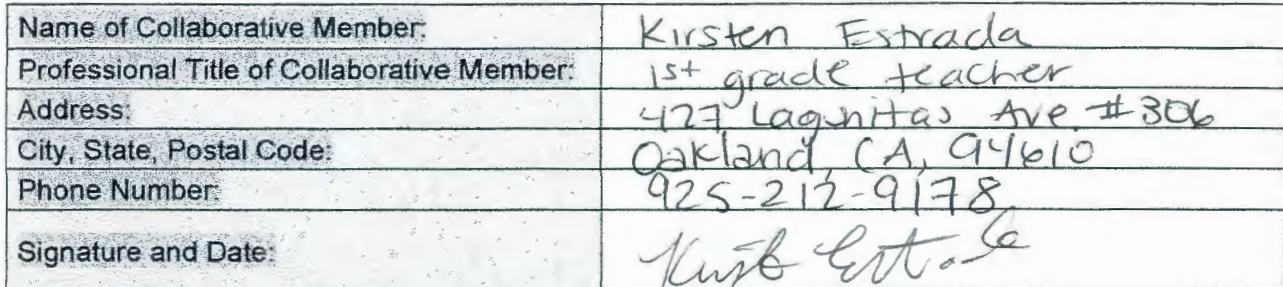 Name of Collaborative Member: Kirsten Estrada
Professional Title of Collaborative Member: 1st grade teacher
Address: 427 Lagunitas Ave #306
City, State, Postal Code: Oakland, CA, 94610
Phone Number: 925-212-9178
Signature and Date: